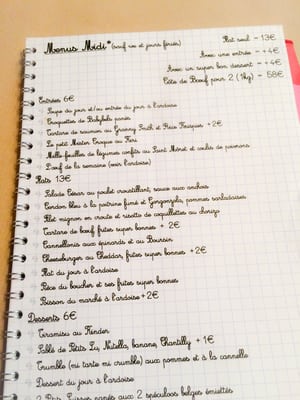 Menus Midi* (sauf we et jours fériés)
Plat seul = 13€
Avec une entrée = +4€
Avec un super bon dessert = +4€
Côte de Bœuf pour 2 (1kg) = 58€
Entrées 6€
Soupe du jour et/ou entrée du jour à l'ardoise
Croquettes de Babybels panés
Tartare de saumon au Granny Smith et Pisco +2€
Le petit Mister Croque au Fort
Mille feuilles de légumes confits au Saint Môret et coulis de poivrons
L'œuf de la semaine (voir l'ardoise)
Plats 13€
Salade César au poulet croustillant, sauce aux anchois
Cordon bleu à la poitrine fumé et Gorgonzola, pommes sarladaises
Filet mignon en croute et risotto de coquillettes au chorizo
Tartare de bœuf frites super bonnes + 2€
Cannellonis aux épinards et au Boursin
Cheeseburger au Cheddar, frites super bonnes +2€
Plat du jour à l'ardoise
Pièce du boucher et ses frites super bonnes
Poisson du marché à l'ardoise +2€
Desserts 6€
Tiramisu au Kinder
Sablé de Petits Lu, Nutella, banane, Chantilly + 1€
Crumble (ni tarte ni crumble) aux pommes et à la cannelle
Dessert du jour à l'ardoise
2 Petits Suisses panés aux 2 spéculoos belges émiettés